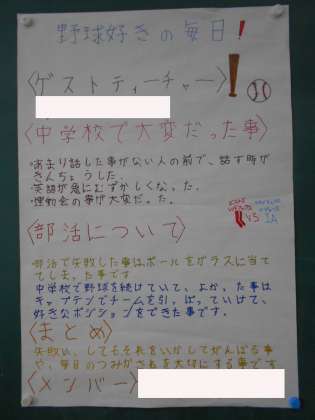 野球好きの毎日!
〈ゲストティーチャー〉
〈中学校で大変だった事〉
・あまり話した事がない人の前で、話す時が
きんちょうした。
・英語が急にむずかしくなった。
・運動会の事が大変だった。
〈部活について〉
VS
部活で失敗した事はボールをガラスに当て
てしまった事です
中学校で野球を続けていて、よかった事は
キャプテンでチームを引っぱっていけて、
好きなポジションをできた事です。
〈まとめ〉
失敗
してもそれをいかしてがんばる事
や、毎日のつみかさねを大切にする事です
〈メンバー〉